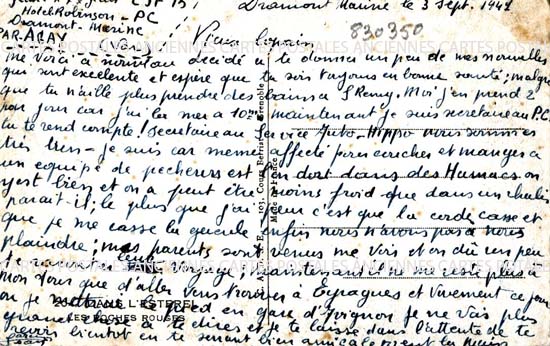 Dramont Marine le 3 Sept. 1941
Hotel Robinson - PC
Dramont-Marine
PAR AGAY
830350
Vieux Copain
me voici à nouveau décidé à te donner un peu de mes nouvelles
qui sont excellente et espère que tu sois toujours en bonne santé; malgré
que tu n'aille plus prendre des bains a St Remy. Moi j'en prend 2
par jour car j'ai la mer à 10m maintenant je suis secretaire au P.C.
tu te rend compte! Secretaire au Service nous sommes
très bien - je suis car meme affecté pour coucher et manger à
un equipe de pecheurs et on dort dans des Hamacs on
y est bien et on a peut être moins froid que dans un chalet
parait-il; le plus que j'ai peur c'est que la corde casse et
que je me casse la gueule enfin nous n'avons pas à nous
plaindre; mes parents sont venus me voir et on dû un peu
te raconter leur voyage; maintenant il ne me reste plus a
Mon tous que d'aller vous trouver à Eyragues et Vivement ce jour
ou je mettrai le pied en gare d'Avignon je ne vais plus
DANS L'ESTEREL
LES ROCHES ROUGES
quand chose à te dire et je te laisse dans l'attente de te
revoir bientot en te serrant bien amicalement la main
103, Cours Berriat - Grenoble
CARTES POSTALES ANCIENNES